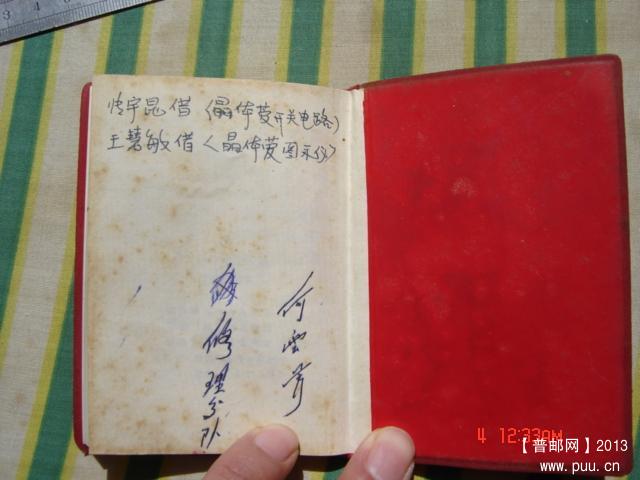 宇昆借《晶体管开关电路》
王慧敏借《晶体管图示仪》
修理分队
何云
4 12:33AM
【普邮网】2013
www.puu.cn